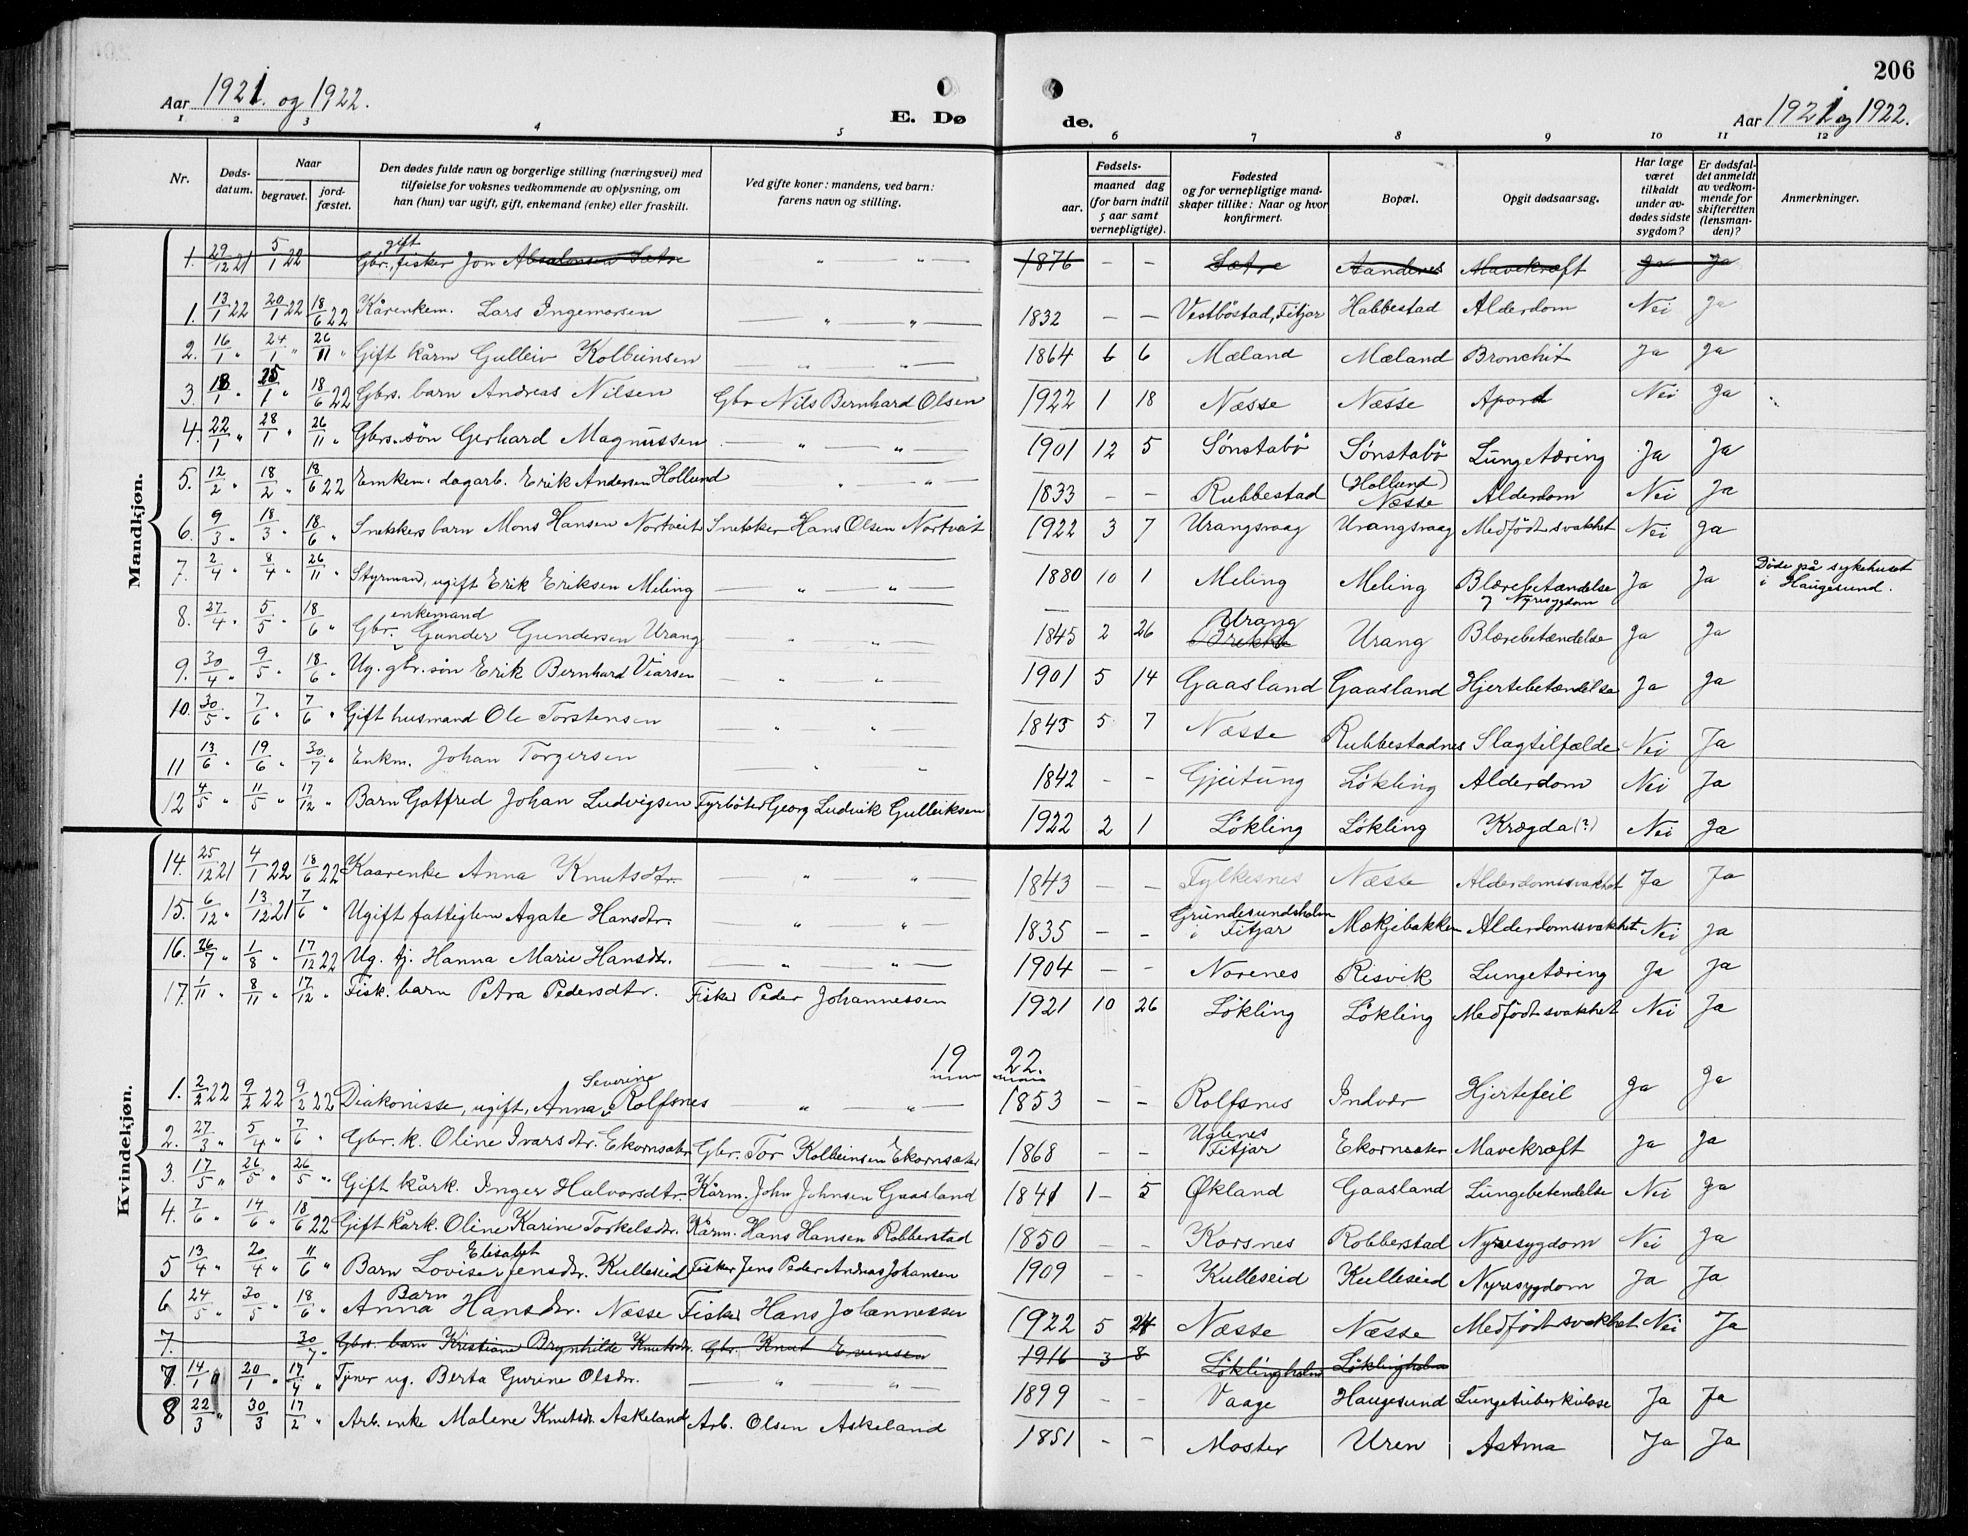 206
Aar 1921. og 1922.
E. Dø
de.
Aar 1921 og 1922.
1 2 3 4 5 6 7 8 9 10 11 12
Nr.
Døds-datum.
Naar
begravet.
jord-fæstet.
Den dødes fulde navn og borgerlige stilling (næringsvei) med tilføielse for voksnes vedkommende av oplysning, om han (hun) var ugift, gift, enkemand (enke) eller fraskilt.
Ved gifte koner: mandens, ved barn: farens navn og stilling.
Fødsels-
aar.
maaned dag
(for barn indtil 5 aar samt vernepligtige).
Fødested og for vernepligtige mand-skaper tillike: Naar og hvor konfirmert.
Bopæl.
Opgit dødsaarsag.
Har læge været tilkaldt under av-dødes sidste sygdom?
Er dødsfal-det anmeldt av vedkom-mende for skifteretten (lensman-den)?
Anmerkninger.
Mandkjøn.
1. 29/12 21 5/1 22 Gbr., gift fisker Jon Absalonsen Sætre „ „ 1876 – – Sætre Aandenes Mavekræft Ja Ja
1. 13/1 22 20/1 22 18/6 22 Kårenkem. Lars Ingemorsen „ „ 1832 – – Vestböstad, Fitjar Habbestad Alderdom Nei Ja
2. 16/1 „ 24/1 „ 26/11 „ Gift kårm Gulleiv Kolbeinsen „ „ 1864 6 6 Mæland Mæland Bronchit Ja Ja
3. 18/1 „ 25/1 „ 18/6 22 Gbrs. barn Andreas Nilsen Gbr Nils Bernhard Olsen 1922 1 18 Næsse Næsse Nei Ja
4. 22/1 „ 28/1 „ 26/11 „ Gbrs. søn Gerhard Magnussen „ „ 1901 12 5 Sønstabö Sønstabö Lungetæring Ja Ja
5. 12/2 „ 18/2 „ 18/6 22 Emkem. dagarb. Erik Andersen Hollund „ „ 1833 – – Rubbestad (Hollund) Næsse Alderdom Nei Ja
6. 9/3 „ 18/3 „ 18/6 „ Snekkers barn Mons Hansen Nortveit Snekker Hans Olsen Nortveit 1922 3 7 Urangsvaag Urangsvaag Medfödt svakhet Nei Ja
7. 2/4 „ 8/4 „ 26/11 „ Styrmand, ugift Erik Eriksen Meling „ „ 1880 10 1 Meling Meling Blærebetændelse og Nyresygdom Ja Ja Döde på sykehuset i Haugesund.
8. 27/4 „ 5/5 „ 18/6 „ Gbr. enkemand Gunder Gundersen Urang „ „ 1845 2 26 Urang Urang Blærebetændelse Ja Ja
9. 30/4 „ 9/5 „ 18/6 „ Ug. gbr. søn Erik Bernhard Viarsen „ „ 1901 5 14 Gaasland Gaasland Hjertebetændelse Ja Ja
10. 30/5 „ 7/6 „ 7/6 „ Gift husmand Ole Torstensen „ „ 1843 5 7 Næsse Rubbestadnes Slagtilfælde Nei Ja
11 13/6 „ 19/6 „ 30/7 „ Enkm. Johan Torgersen „ „ 1842 – – Gjeitung Lökling Alderdom Nei Ja
12 4/5 „ 11/5 „ 17/12 „ Barn Gotfred Johan Ludvigsen Fyrböter Georg Ludvik Gulleiksen 1922 2 1 Lökling Lökling Krægda (?) Nei Ja
Kvindekjøn.
14. 25/12 21 4/1 22 18/6 22 Kaarenke Anna Knutsdtr. „ „ 1843 – – Fylkesnes Næsse Alderdomssvakhet Ja Ja
15. 6/12 „ 13/12 21 7/6 „ Ugift fattiglem Agate Hansdtr. „ „ 1835 – – Grundesundsholm i Fitjar Mækjebakken Alderdomssvakhet Nei Ja
16. 26/7 „ 1/8 „ 17/12 22 Ug. tj. Hanna Marie Hansdtr. „ „ 1904 – – Norenes Risvik Lungetæring Ja Ja
17. 1/11 „ 8/11 „ 17/12 „ Fisk. barn Petra Pedersdtr. Fisker Peder Johannessen 1921 10 26 Lökling Lökling Medfödt svakhet Nei Ja
19 22.
1. 2/2 22 9/2 22 9/2 22 Diakonisse, ugift, Anna Severine Rolfsnes „ „ 1853 – – Rolfsnes Indvær Hjertefeil Ja Ja
2. 27/3 „ 5/4 „ 7/6 „ Gbr. k. Oline Ivarsdtr. Ekornsæter Gbr. Tor Kolbeinsen Ekornsæter 1868 – – Uglenes Fitjar Ekornsæter Mavekræft Ja Ja
3. 17/5 „ 26/5 „ 26/5 „ Gift kårk. Inger Halvorsdtr. Kårm. John Johnsen Gaasland 1841 1 – 5 Økland Gaasland Lungebetendelse Nei Ja
4. 7/6 „ 14/6 „ 18/6 22 Gift kårk. Oline Karine Torkelsdtr. Kårm. Hans Hansen Robberstad 1850 – – Korsnes Robberstad Nyresygdom Nei Ja
5 13/4 „ 20/4 „ 11/6 „ Barn Lovise Elisabet Jensdtr. Kulleseid Fisker Jens Peder Andreas Johansen 1909 – – Kulleseid Kulleseid Nyresygdom Ja Ja
6 24/5 „ 30/5 „ 18/6 „ Barn Anna Hansdtr. Næsse Fisker Hans Johannessen 1922 5 24 Næsse Næsse Medfödt svakhet Nei Ja
7. 30/7 „ Gbr. barn Kristiane Brynhilde Knutsdtr. Gbr. Knut Evensen 1916 3 8 Löklingholm Löklingholm
7 14/1 „ 20/1 „ 17/4 „ Tjener ug. Berta Gurine Olsdtr. „ „ 1899 – – Vaage Haugesund Lungetuberkulose Ja Ja
8 22/3 „ 30/3 „ 17/2 „ Arb. enke Malene Knutsdtr. Askeland Arb. Olsen Askeland 1851 – – Moster Uren Astma Ja Ja